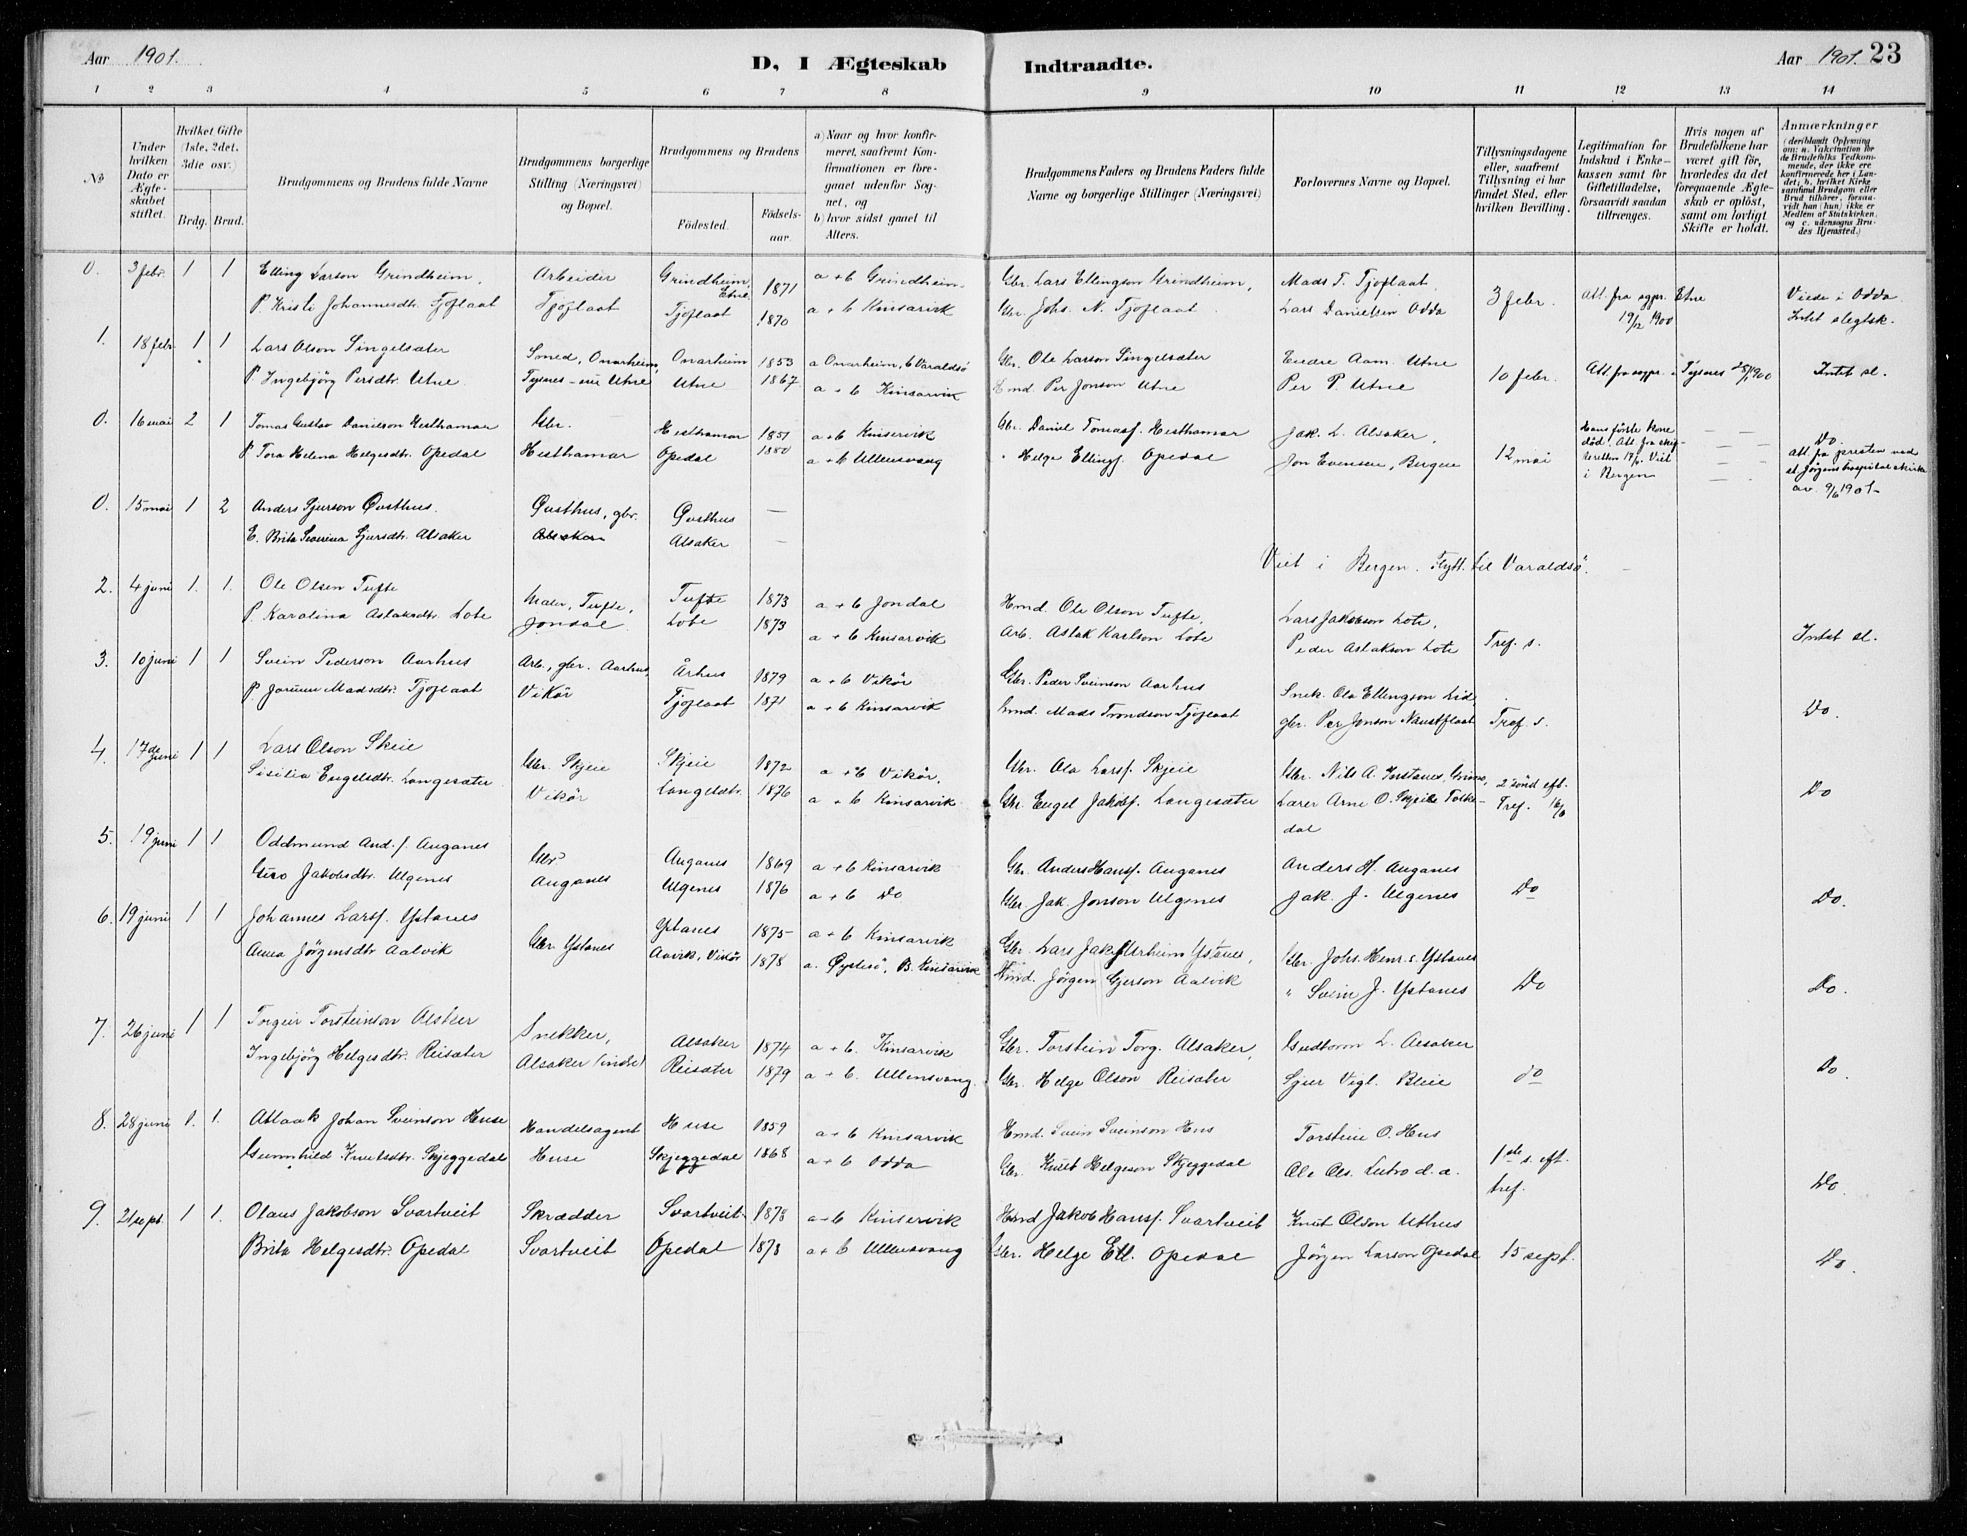 Aar 1901.
D, I Ægteskab Indtraadte.
Aar 1901. 23
1 2 3 4 5 6 7 8 9 10 11 12 13 14
No
Under hvilken Dato er Ægteskabet stiftet.
Hvilket Gifte (1ste, 2det, 3die osv.)
Brdg. Brud.
Brudgommens og Brudens fulde Navne
Brudgommens borgerlige Stilling (Næringsvei) og Bopæl.
Brudgommens og Brudens
Födested.
Födselsaar.
a) Naar og hvor konfirmeret, saafremt Konfirmationen er foregaaet udenfor Sognet, og
b) hvor sidst gaaet til Alters.
Brudgommens Faders og Brudens Faders fulde Navne og borgerlige Stillinger (Næringsvei)
Forlovernes Navne og Bopæl.
Tillysningsdagene eller, saafremt Tillysning ei har fundet Sted, efter hvilken Bevilling.
Legitimation for Indskud i Enkekassen samt for Giftetilladelse, forsaavidt saadan tiltrænges.
Hvis nogen af Brudefolkene har været gift för, hvorledes da det foregaaende Ægteskab er oplöst, samt om lovligt Skifte er holdt.
Anmærkninger
(deriblandt Oplysning om: a. Vakcination for de Brudefolks Vedkommende, der ikke ere konfirmerede her i Landet; b. hvilket Kirkesamfund Brudgom eller Brud tilhörer, forsaavidt han (hun) ikke er Medlem af Statskirken, og c. udensogns Brudes Hjemsted.)
0. 3 febr. 1 1 Elling Larson Grindheim. Arbeider Grindheim, Etne 1871 a + b Grindheim Gbr. Lars Ellingson Grindheim, Mads T. Tjoflaat 3 febr. Att. fra sogpr. Etne 19/12 1900 Viede i Odda
P. Kristi Johannesdtr. Tjoflaat Tjoflaat Tjoflaat 1870 a + b Kinsarvik Gbr. Johs. N. Tjoflaat Lars Danielsen Odda Intet slegtsk.
1. 18 febr 1 1 Lars Olson Singelsæter Smed, Onarheim, Onarheim 1853 a Onarheim, b Varaldsö Gbr. Ole Larson Singelsæter Endre Aam. Utne 10 febr. Att. fra sogpr. i Tysnes 28/1 1900 Intet sl.
P. Ingebjörg Persdtr. Utne Tysnes - nu Utne Utne 1867 a + b Kinsarvik Hmd. Per Jonson Utne Per P. Utne
0. 16 mai 2 1 Tomas Gustav Danielson Hesthamar Gbr. Hesthamar 1851 a + b Kinservik Gbr. Daniel Tomasf. Hesthamar Jak. L. Alsaker, 12 mai Hans förste kone död. Att. fra skifteretten 17/5. Viet i Bergen Do.
P. Tora Helena Helgesdtr. Opedal Hesthamar Opedal 1880 a + b Ullensvang " Helge Ellingf. Opedal Jon Evensen, Bergen att. fra presten ved st. Jörgens hospitals kirke av 9/6 1901-
0. 15 mai 1 2 Anders Sjurson Qvsthus. Qvsthus, gbr. Qvsthus —
E. Brita Severina Sjursdtr. Alsaker Alsaker Alsaker —
Viet i Bergen. Flytt. til Varaldsö.
2. 4 juni 1. 1. Ole Olsen Tufte Maler, Tufte, Tufte 1873 a + b Jondal Hmd. Ole Olson Tufte, Lars Jakobson Lote,
P. Karolina Aslaksdtr. Lote Jondal Lote 1873 a + b Kinsarvik Arb. Aslak Karlson Lote Peder Aslakson Lote Tref. s. Intet sl.
3. 10 juni 1 1 Svein Pederson Aarhus Arb., gbr. Aarhus, Århus 1879 a + b Vikör Gbr. Peder Sveinson Aarhus Snek. Ola Ellingson Lid,
P. Jorunn Madsdtr. Tjoflaat Vikör Tjoflaat 1871 a + b Kinsarvik Hmd. Mads Trondson Tjoflaat gbr. Per Jonson Naustflaat Tref. s. Do.
4. 17de juni 1 1 Lars Olson Skeie Gbr. Skjeie Skjeie 1872 a + b Vikör. Gbr. Ola Larsf. Skjeie Gbr. Nils A. Instanes, Grimo, 2 sönd eft.
Sisilia Engelsdtr. Langesæter Vikör Langesdtr. 1876 a + b Kinsarvik Gbr. Engel Jakobf. Langesæter Lærer Arne O. Skjeie Tolkedal Tref. 16/6 Do
5. 19 juni 1 1 Oddmund And. f. Auganes Gbr. Auganes 1869 a + b Kinsarvik Gbr. Anders Hansf. Auganes Anders H. Auganes
Guro Jakobsdtr. Ulgenes Auganes Ulgenes 1876 a + b Do Gbr. Jak. Jonson Ulgenes Jak. J. Ulgenes Do Do.
6. 19 juni 1 1 Johannes Larsf. Ystanes Gbr Ystanes Ystanes 1875 a + b Kinsarvik Gbr. Lars Jak. Urheim Ystanes, Gbr. Johs. Henr. s. Ystanes
Anna Jörgensdtr Aalvik Aavik, Vikör 1878 a. Öystesö, B. Kinsarvik Hmd. Jörgen Gjerson Aalvik " Svein J. Ystanes Do Do.
7. 26 juni 1 1 Torgeir Torsteinson Alsker Snekker, Alsaker 1874 a + b. Kinsarvik Gbr. Torstein Torg. Alsaker, Gudtorm L. Alsaker
Ingebjörg Helgesdtr. Reisæter Alsaker (indre) Reisæter 1879 a + b. Ullensvang. Gbr. Helge Olson Reisæter Sjur Vigl. Bleie do Do.
8. 28 juni 1. 1. Aslaak Johan Sveinson Huse Handelsagent Huse 1859 a + b Kinsarvik Hmd. Svein Sveinson Hus Torstein O. Hus 1ste s. eft.
Gunnhild Knutsdtr. Skjeggedal Huse Skjeggedal 1868 a + b Odda Gbr. Knut Helgeson Skjeggedal Ole Ols. Lutro d. a. tref. Do.
9. 21 sept. 1 1. Olaus Jakobson Svartveit Skrædder Svartveit 1878 a + b Kinservik Hmd Jakob Hansf. Svartveit Knut Olson Uthus
Brita Helgesdtr. Opedal Svartveit Opedal 1878 a + b Ullensvang Gbr. Helge Ell. Opedal Jörgen Larson Opedal 15 sept. Do.